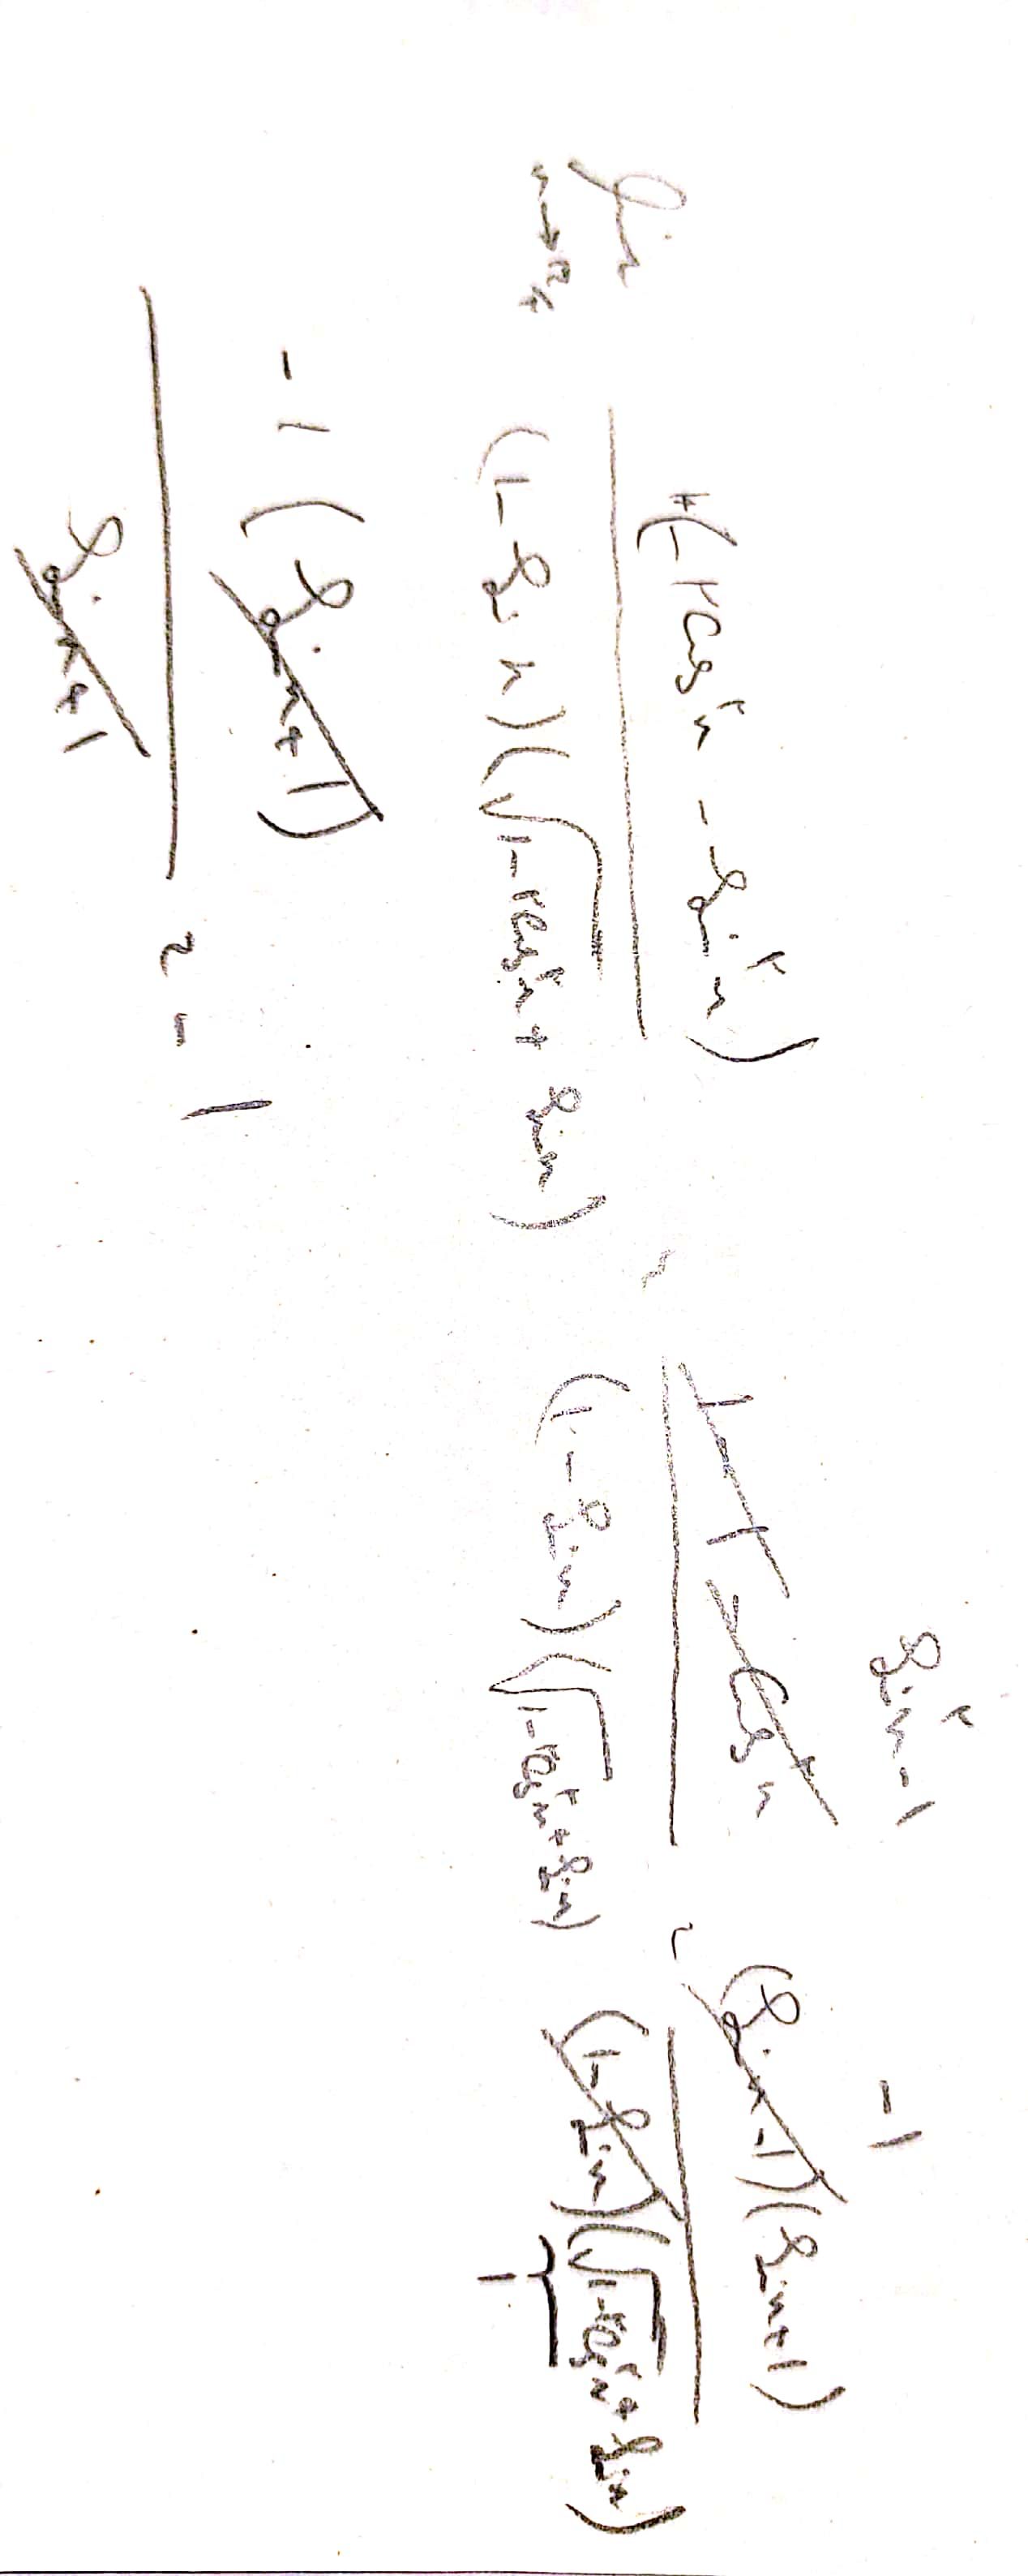 lim x→π/۲ (1-۲Cos²x - Sin²x) / (1 - Sin x)(√1-۲Cos²x + Sin x) = Sin²x - 1 / (1 - Sin x)(√1-۲Cos²x + Sin x) = -1 (Sin x - 1)(Sin x + 1) / (1 - Sin x)(√1-۲Cos²x + Sin x)
1
-1 (Sin x + 1) / Sin x + 1 = -1